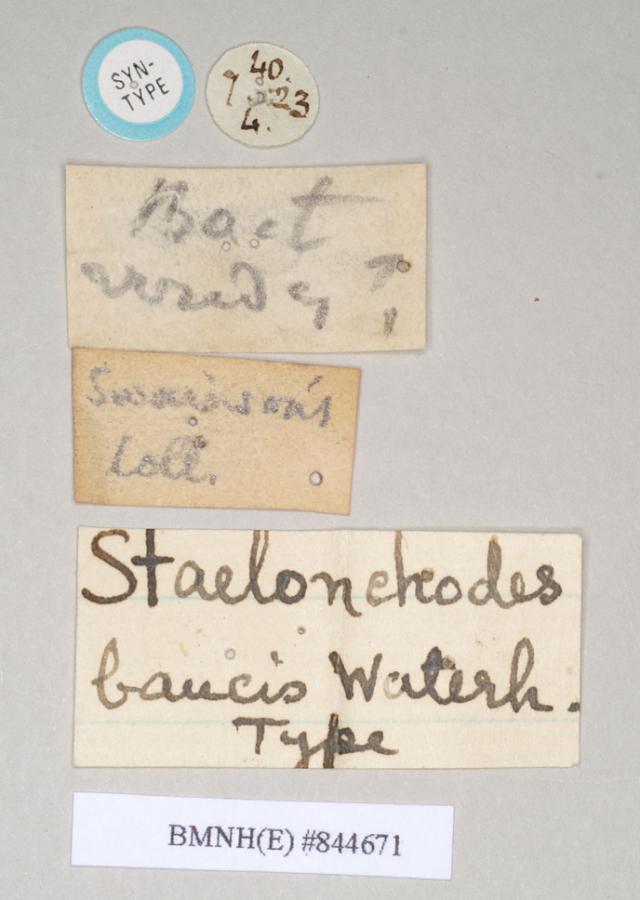 SYN-
TYPE
40.
7 23
4.
Bact
?
Swainson's
Coll.
Staelonchodes
baucis Waterh.
Type
BMNH(E) #844671